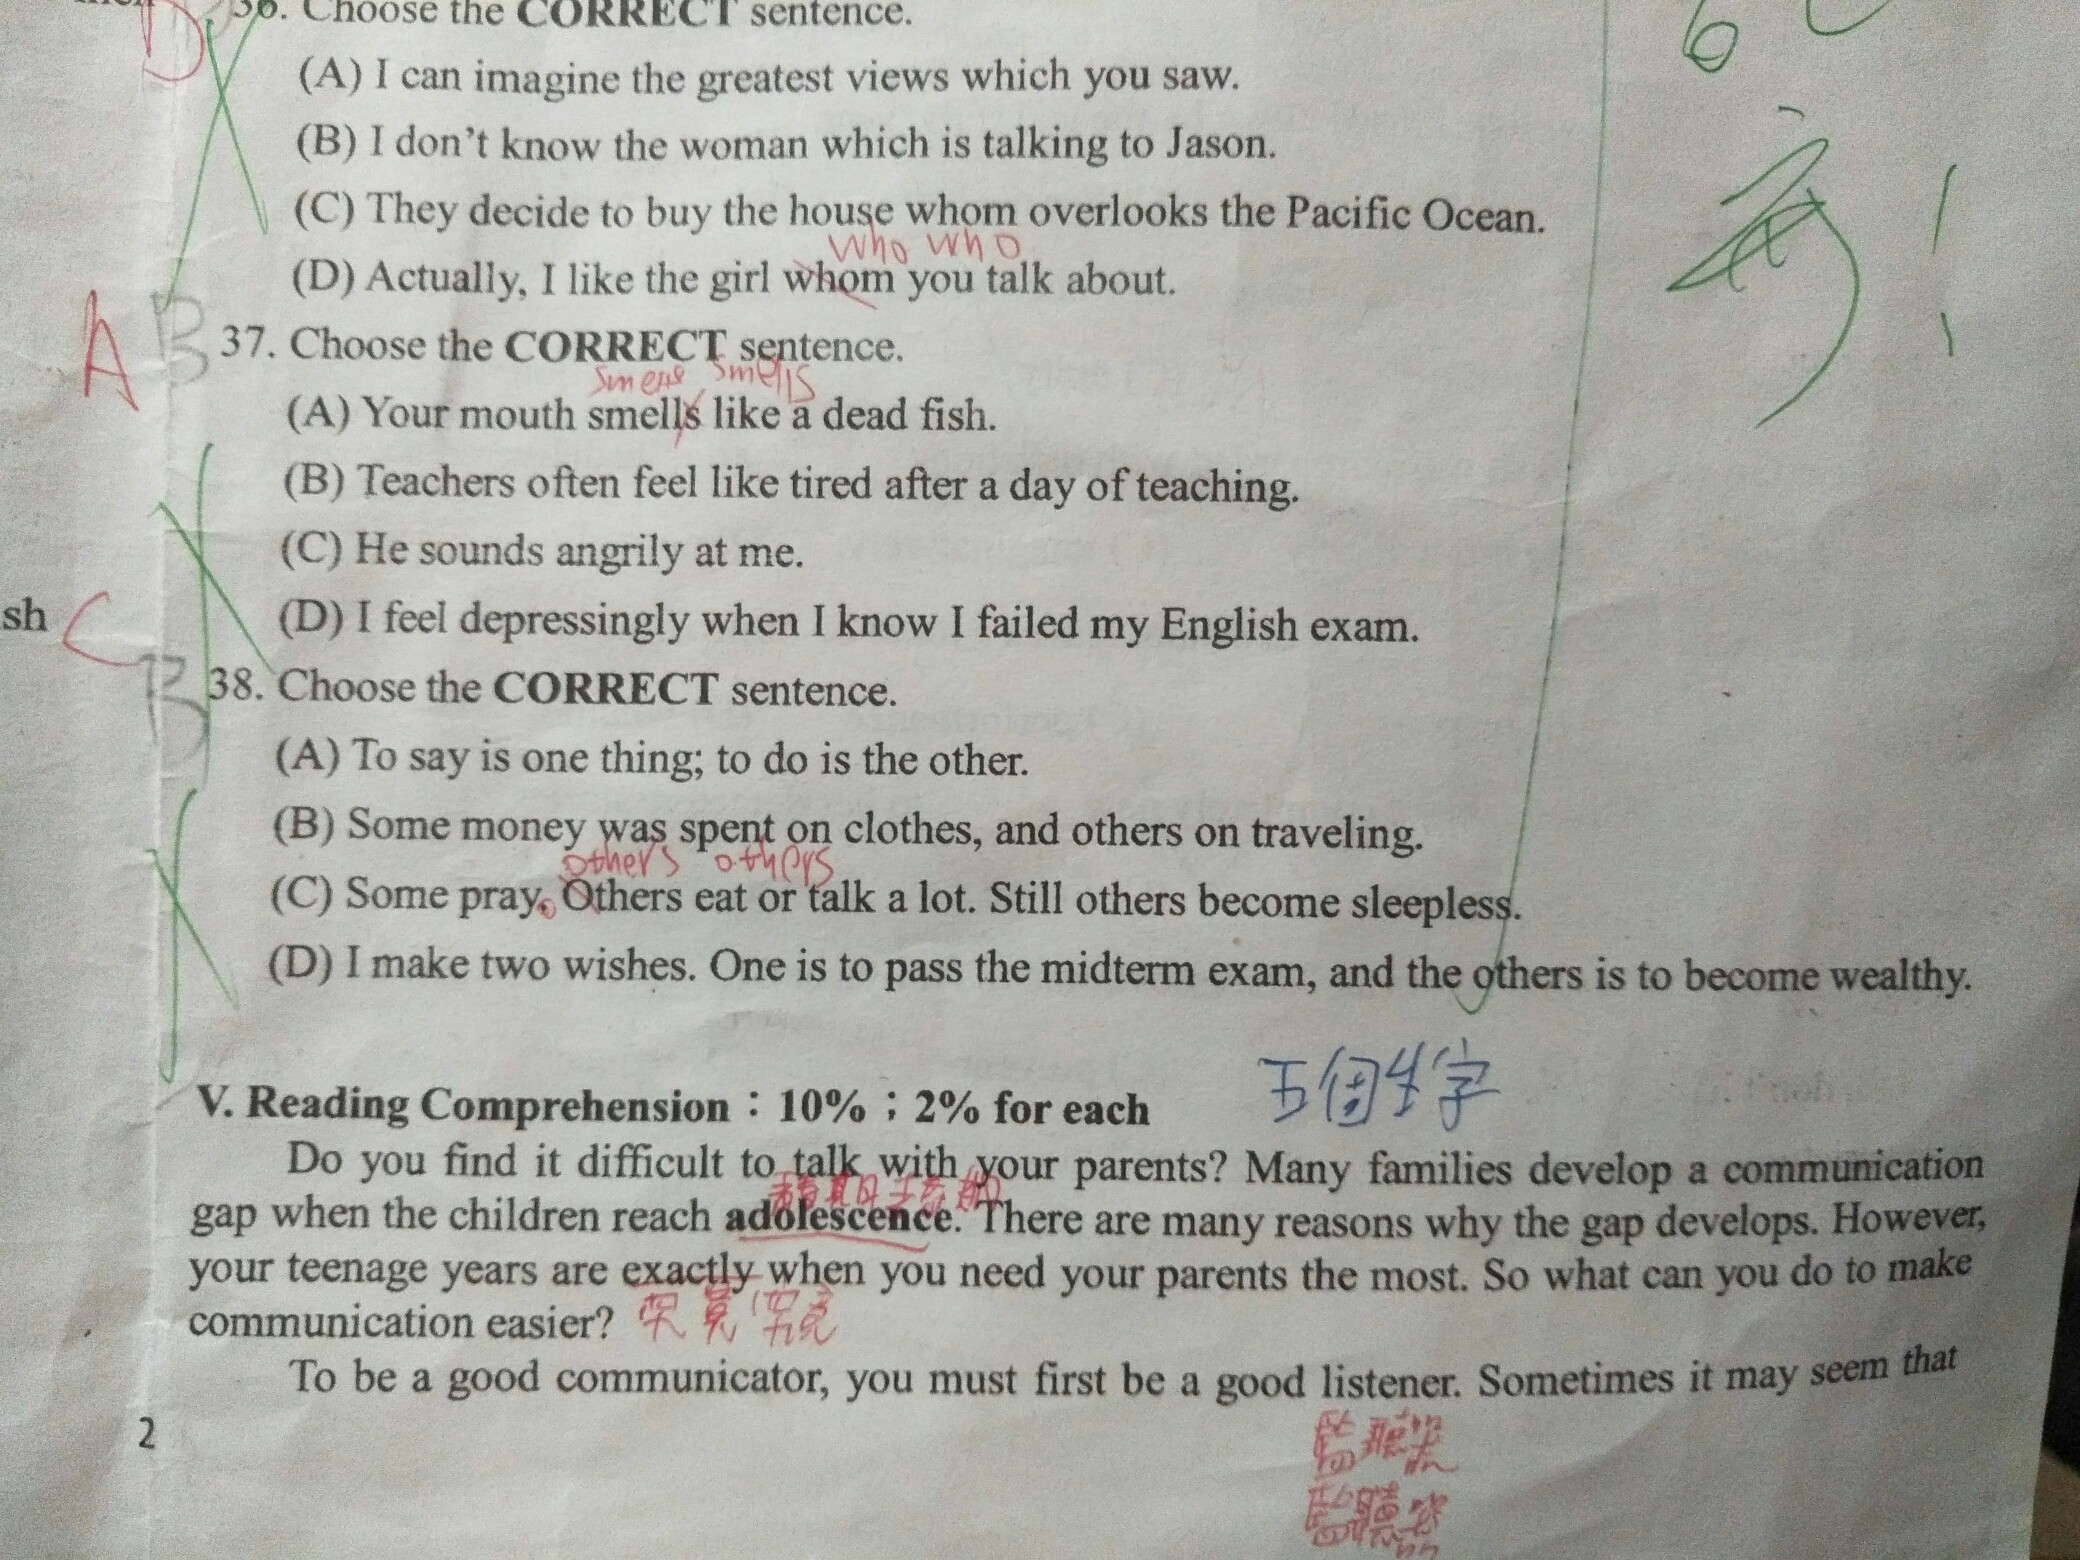 D 36. Choose the CORRECT sentence.
(A) I can imagine the greatest views which you saw.
(B) I don't know the woman which is talking to Jason.
(C) They decide to buy the house whom overlooks the Pacific Ocean.
who who
(D) Actually, I like the girl whom you talk about.
A B 37. Choose the CORRECT sentence.
smells
(A) Your mouth smells like a dead fish.
(B) Teachers often feel like tired after a day of teaching.
(C) He sounds angrily at me.
sh
(D) I feel depressingly when I know I failed my English exam.
C B 38. Choose the CORRECT sentence.
(A) To say is one thing; to do is the other.
(B) Some money was spent on clothes, and others on traveling.
others others
(C) Some pray. Others eat or talk a lot. Still others become sleepless.
(D) I make two wishes. One is to pass the midterm exam, and the others is to become wealthy.
五個生字
V. Reading Comprehension：10%；2% for each
Do you find it difficult to talk with your parents? Many families develop a communication
gap when the children reach adolescence. There are many reasons why the gap develops. However,
your teenage years are exactly when you need your parents the most. So what can you do to make
communication easier?
To be a good communicator, you must first be a good listener. Sometimes it may seem that
2